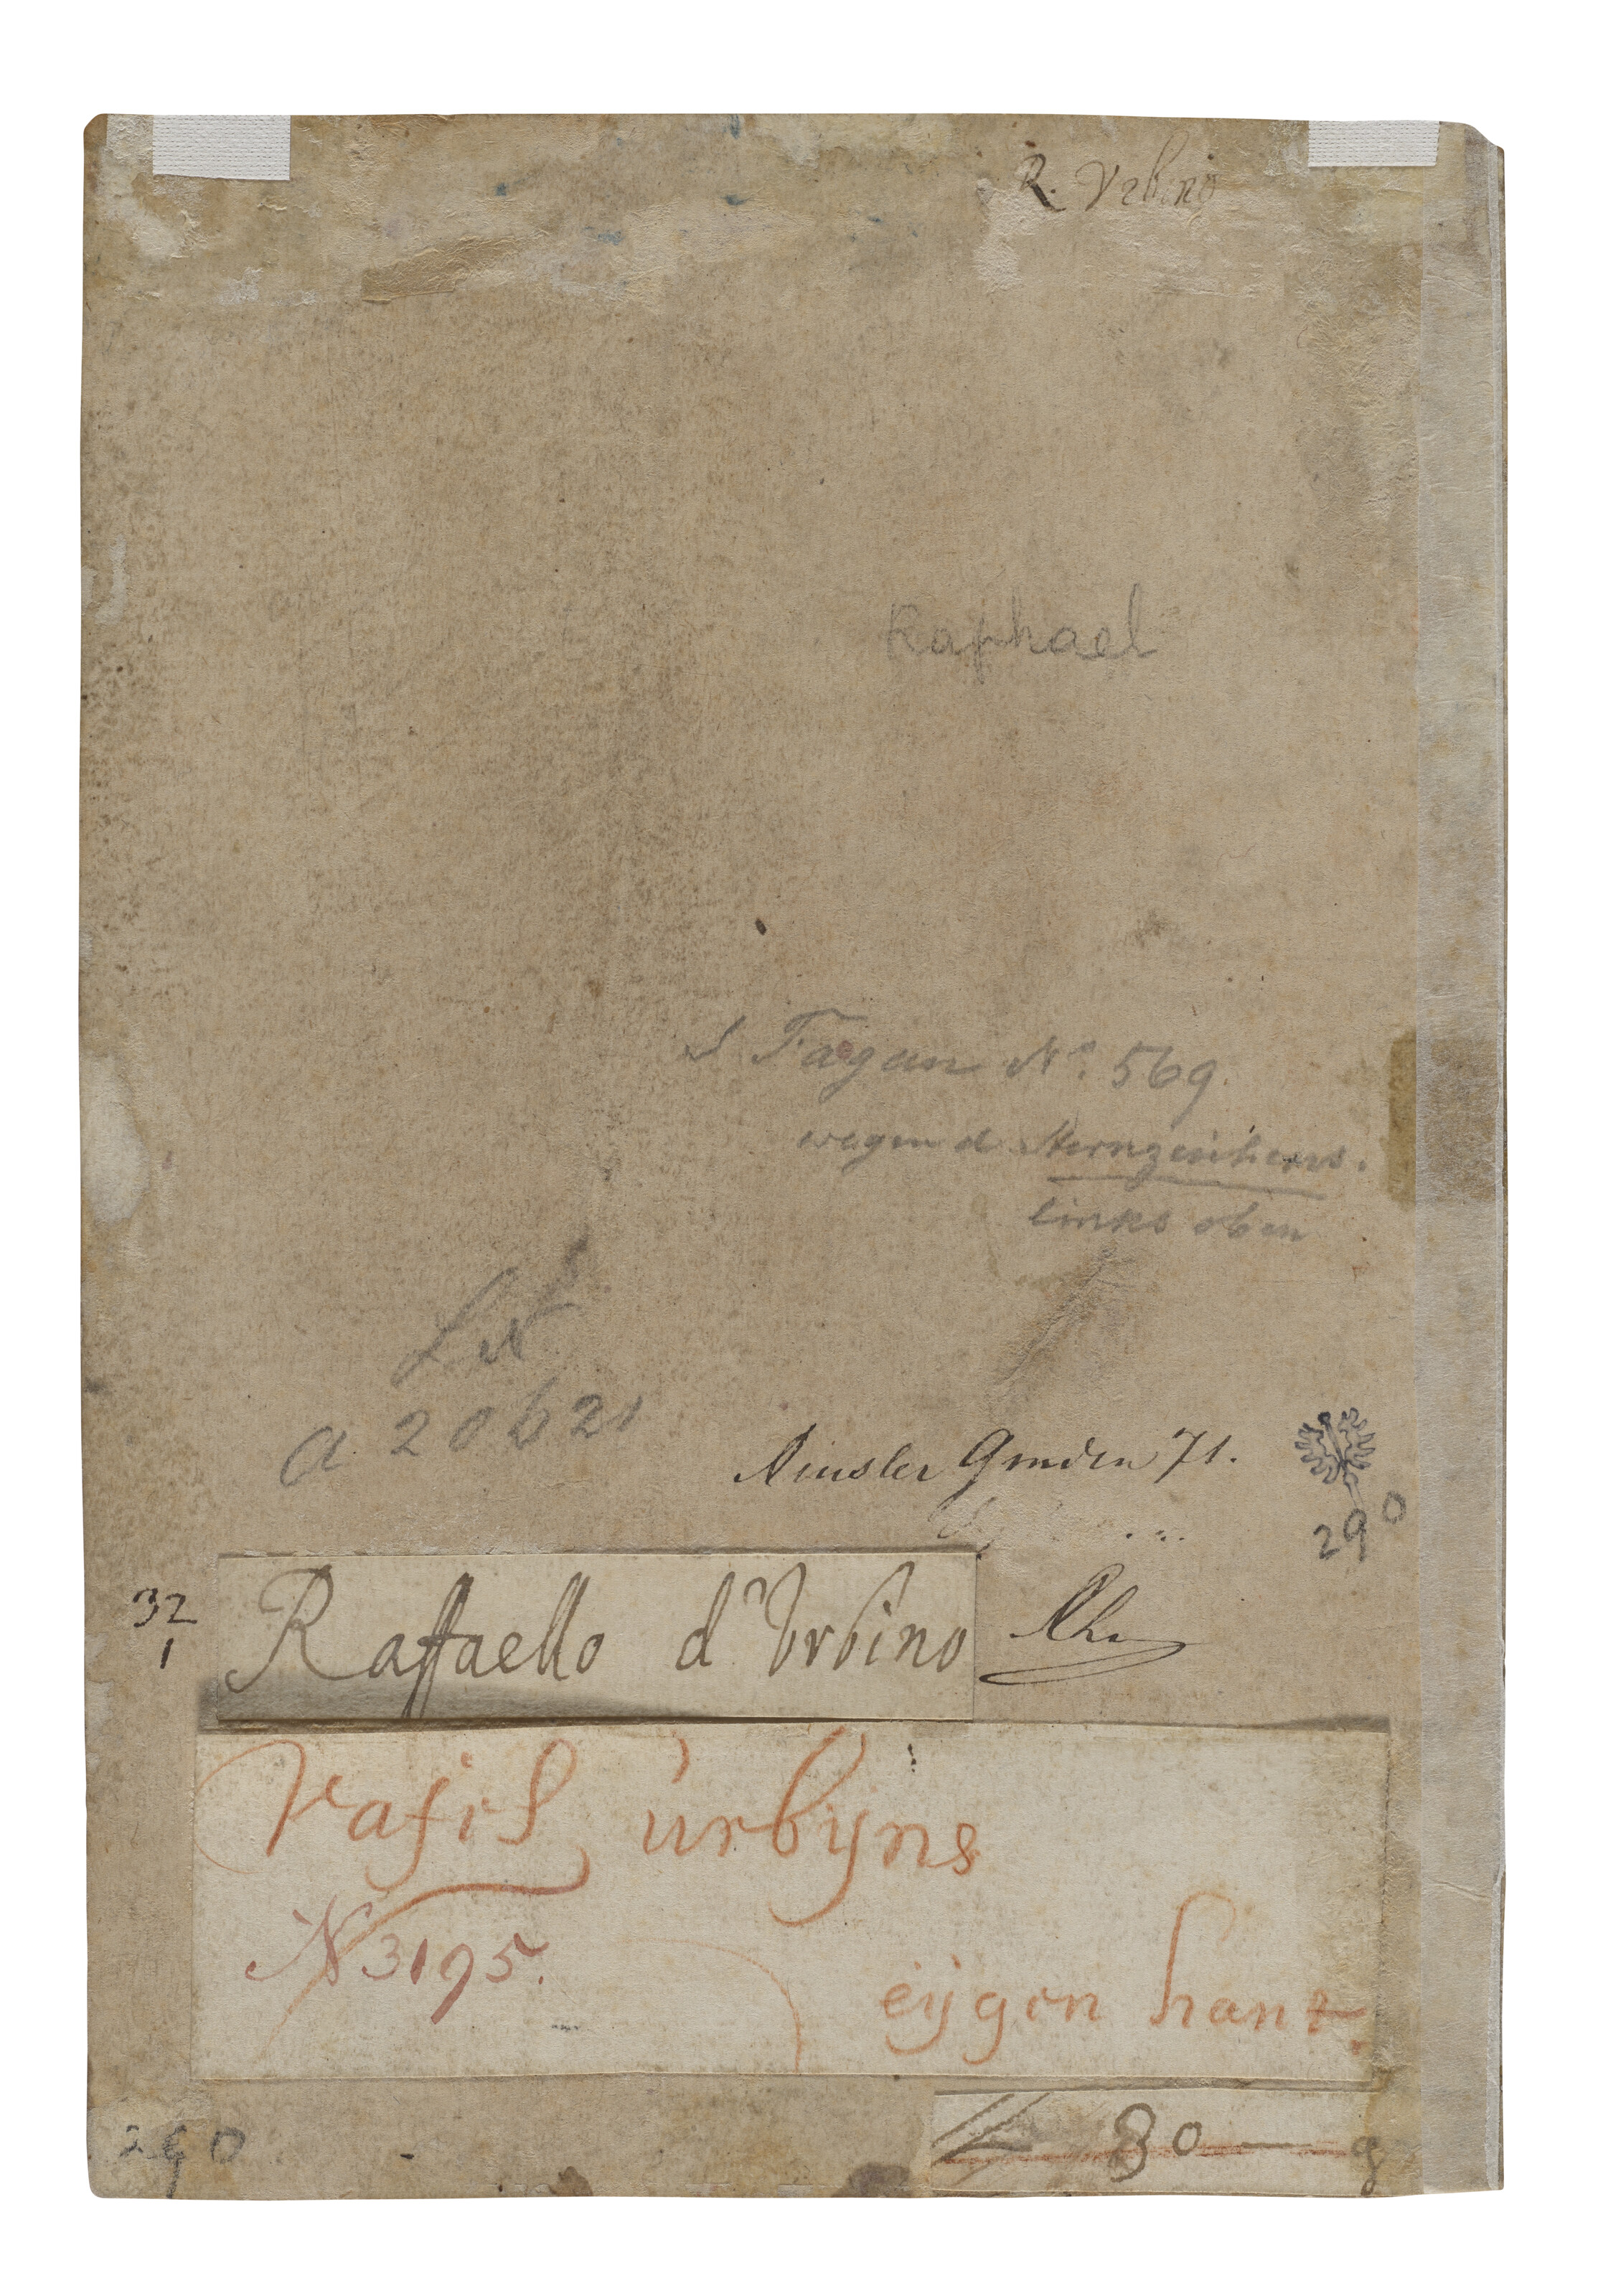 R. Vrbino
Raphael
Fagan No. 569.
wegen d Sternzeichens.
links oben
a 20 b 21
71.
290
32
1
Raffaello d'Vrbino
Rafiel urbyns
N 3195.
eygen hant.
30 — g
290